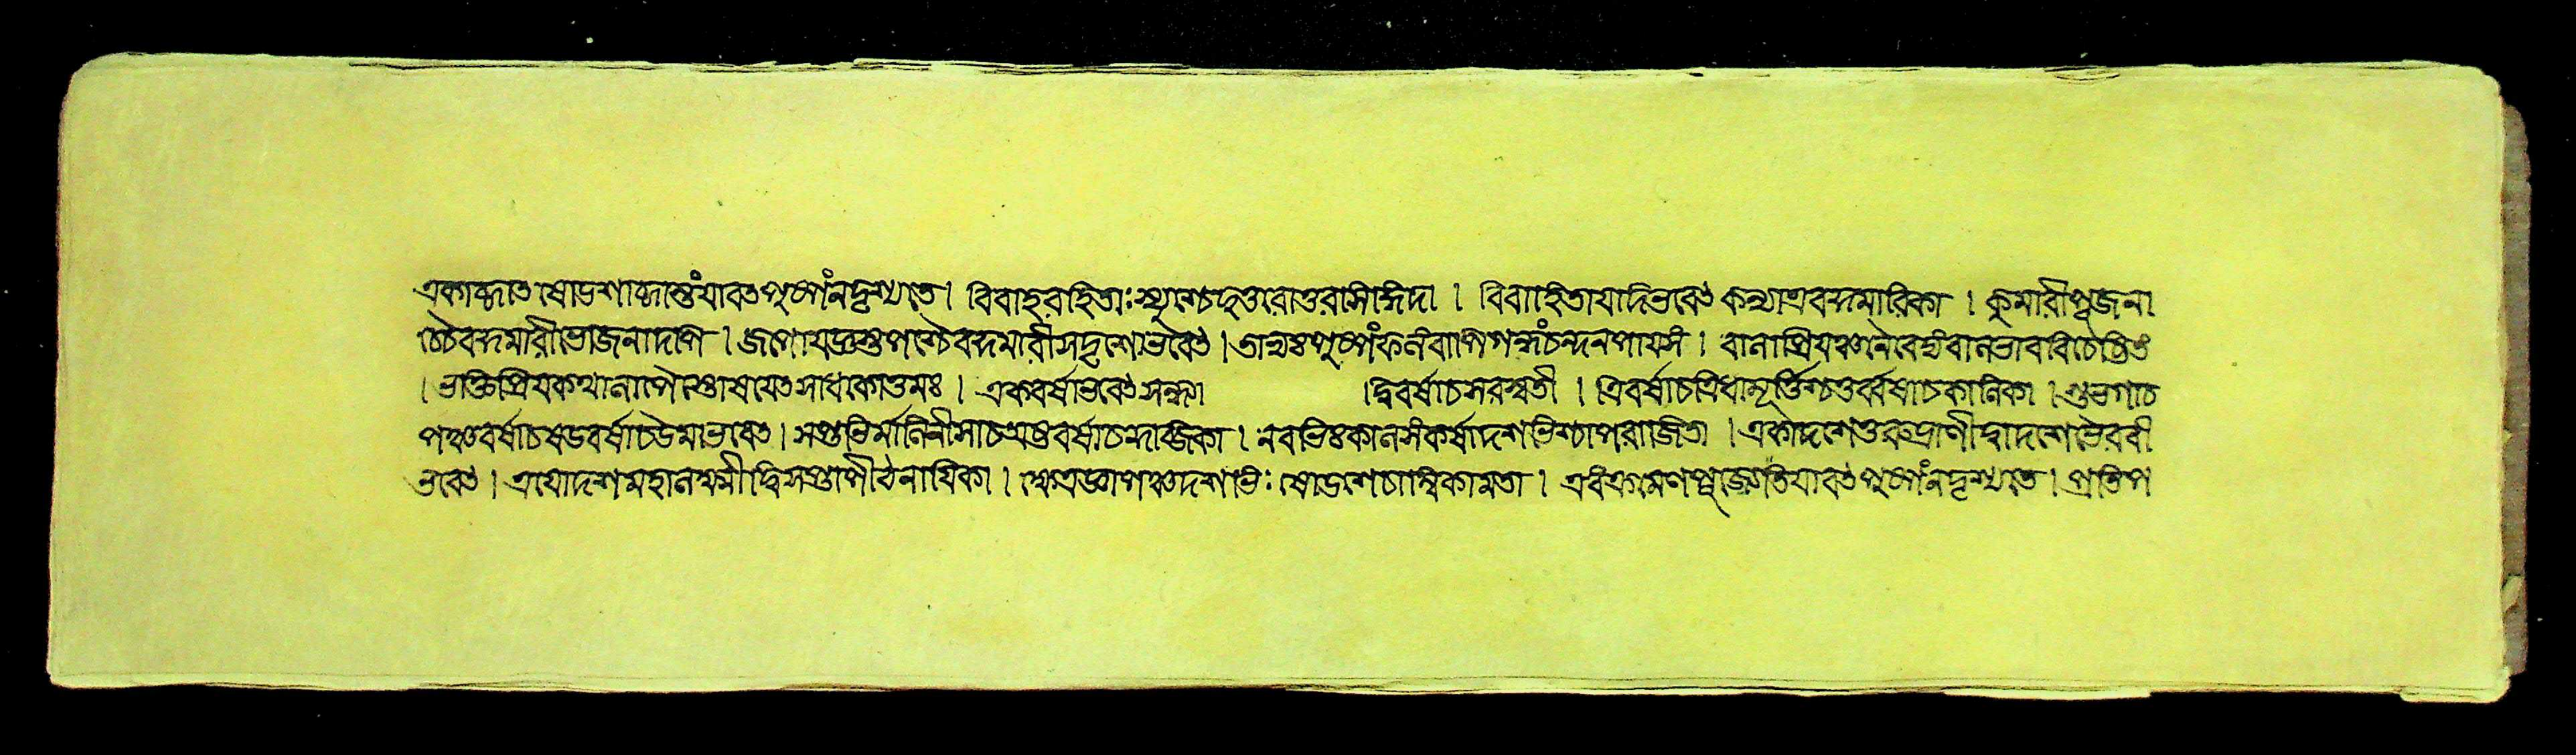 একাব্দাত ষোডশাব্দান্তং যাবত পুষ্পং ন দৃশ্যতে । বিবাহরহিতাঃ শ্রেষ্ঠা হ্যুত্তরোত্তরসিদ্ধিদা । বিবাহিতা যদি ভবেৎ কন্যা এব কুমারিকা । কুমারী পূজনা
চ্চৈব কুমারীভোজনাদপি । জপো যজ্ঞস্তপশ্চৈব কুমারীসদৃশো ভবেৎ । পুষ্পং ফলং বাপি গন্ধং চন্দনপায়সং । বালাপ্রিয়ঞ্চ নৈবেদ্যং বালভাববিচেষ্টিতং
। প্রিয়কথালাপৈস্তোষয়েৎ সাধকোত্তমঃ । একবর্ষা ভবেৎ সন্ধ্যা দ্বিবর্ষা চ সরস্বতী । ত্রিবর্ষা চ ত্রিধামূর্ত্তিশ্চতুর্ব্বর্ষা চ কালিকা । শুভগা চ
পঞ্চবর্ষা চ ষডবর্ষা চ উমা ভবেৎ । সপ্তভির্মালিনী সা চ অষ্টবর্ষা চ কুব্জিকা । নবভিঃ কালসংকর্ষা দশভিশ্চাপরাজিতা । একাদশে তু রুদ্রাণী দ্বাদশে ভৈরবী
ভবেৎ । ত্রয়োদশ মহালক্ষ্মী দ্বিসপ্তা পীঠনায়িকা । ক্ষেত্রজ্ঞা পঞ্চদশভিঃ ষোডশে চাম্বিকা মতা । এবং ক্রমেণ পূজ্যেতি যাবৎ পুষ্পং ন দৃশ্যতে । প্রতিপ